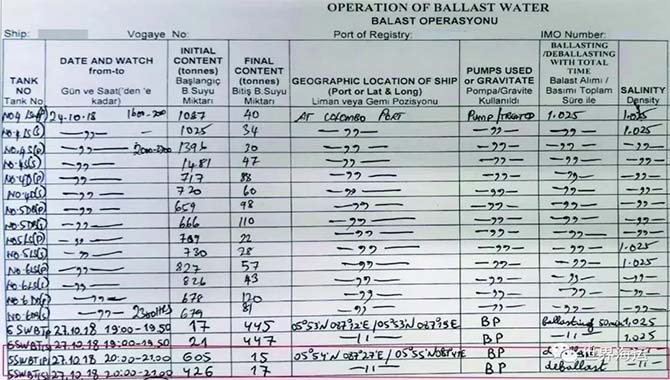 OPERATION OF BALLAST WATER
BALAST OPERASYONU
Ship: Vogaye No: Port of Registry: IMO Number:
TANK NO Tank No. DATE AND WATCH from-to Gün ve Saat('den 'e kadar) INITIAL CONTENT (tonnes) Başlangıç B.Suyu Miktarı FINAL CONTENT (tonnes) Bitiş B.Suyu Miktarı GEOGRAPHIC LOCATION OF SHIP (Port or Lat & Long) Liman veya Gemi Pozisyonu PUMPS USED or GRAVITATE Pompa/Gravite Kullanıldı BALLASTING /DEBALLASTING WITH TOTAL TIME Balast Alımı / Basımı Toplam Süre ile SALINITY Density
24.10.18 1087 40 AT COLOMBO PORT PUMP / 1.025 1.025
—"— 1025 34 —"— —"— —"— 1.025
NO.4S(P) —"— 1396 30 —"— —"— —"— —"—
NO.4S(S) —"— 1481 47 —"— —"— —"— —"—
NO.4D(P) —"— 717 88 —"— —"— —"— —"—
NO.4D(S) —"— 720 60 —"— —"— —"— —"—
NO.5DB(P) —"— 659 98 —"— —"— —"— —"—
NO.5DB(S) —"— 666 110 —"— —"— —"— —"—
NO.5LS(P) —"— 22 —"— —"— —"— —"—
NO.5LS(S) —"— 730 28 —"— —"— —"— 1.025
NO.6LS(P) —"— 827 57 —"— —"— —"— 1.025
NO.6LS(S) —"— 826 43 —"— —"— —"— —"—
—"— 678 120 —"— —"— —"— —"—
—"— 2300HRS 679 81 —"— —"— —"— —"—
SSWBT(P) 27.10.18 19:00-19:50 17 445 05°53'N 087°12'E / 05°53'N 087°19'E BP Ballasting 50min 1,025
SSWBT(S) 27.10.18 19:00-19:50 21 447 —11— BP —11— 1.025
SSWBT(P) 27.10.18 20:00-21:00 605 15 05°54'N 087°27'E / BP
SSWBT(S) 27.10.18 20:00-21:00 426 17 —11— BP deballast —11—